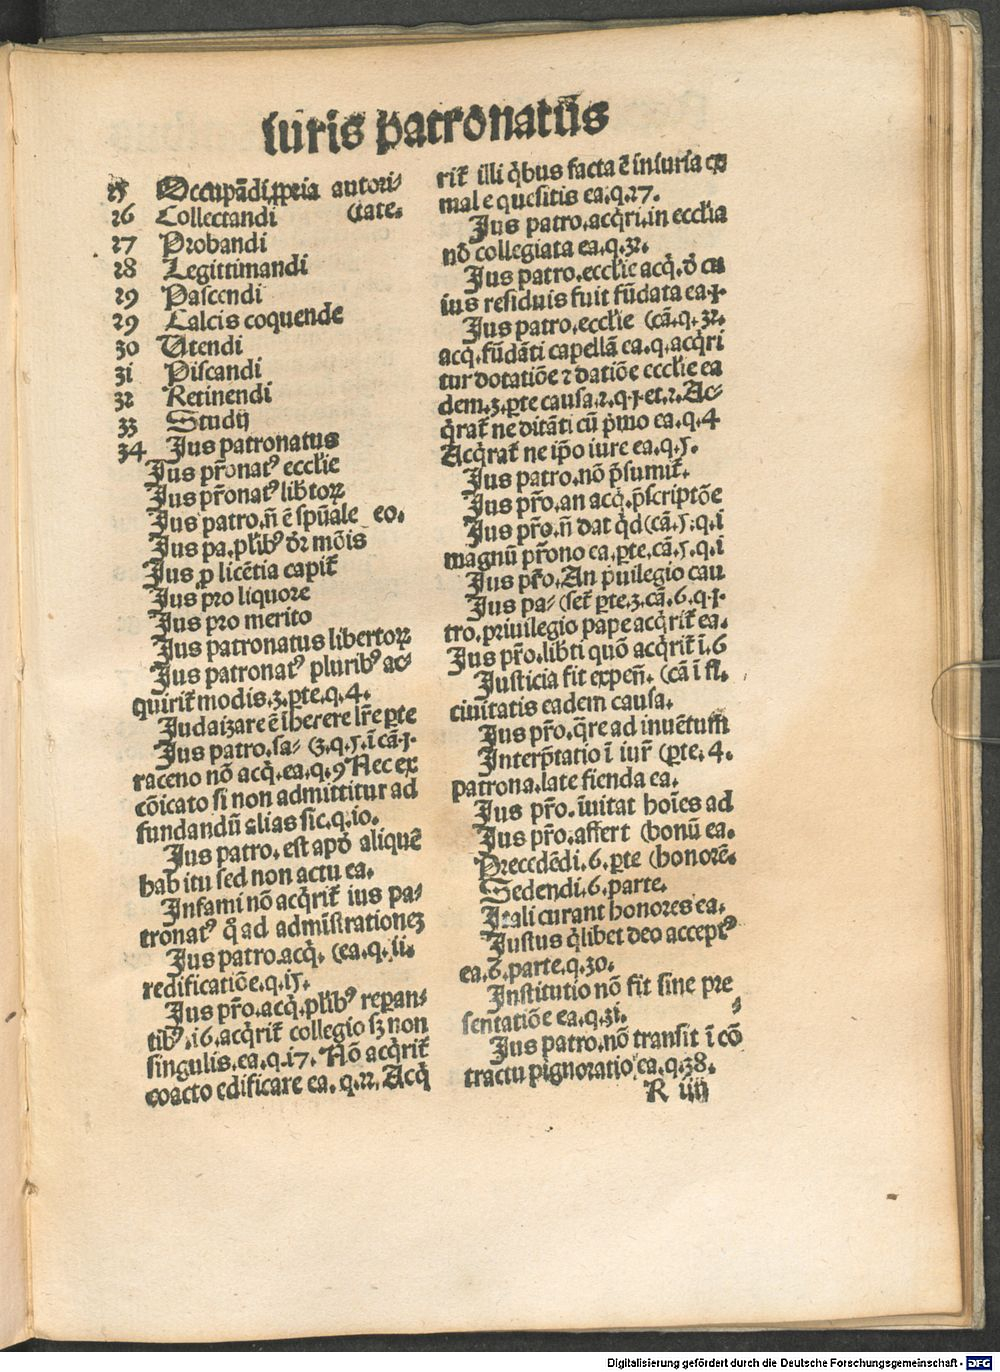 iuris patronatus
25 Occupādi ꝓpria autori-
26 Collectandi (tate.
27 Probandi
28 Legittimandi
29 Pascendi
29 Calcis coquende
30 Utendi
31 Piscandi
32 Retinendi
33 Studij
34 Jus patronatus
Jus pr̄onatꝰ eccl̄ie
Jus pr̄onatꝰ lib̄toꝝ
Jus patro.n̄ ē spūale eo.
Jus pa.pl̄ibꝰ dr̄ mōis
Jus ꝓ licētia capit̄
Jus pro liquore
Jus pro merito
Jus patronatus libertoꝝ
Jus patronatꝰ pluribꝰ ac-
quirit̄ modis.3.ꝑte.q.4.
Judaizare ē īherere lr̄e ꝑte
Jus patro.sa- (3.q.5.ī cā.1.
raceno nō acq̄.ea.q.9 Nec ex
cōicato si non admittitur ad
fundandū alias sic.q.10.
Jus patro.est apd̄ aliquē
habitu sed non actu ea.
Infami nō acq̄rit̄ ius pa-
tronatꝰ qͦ ad administrationeꝫ
Jus patro.acq̄. (ea.q.ii.
redificatiōe.q.15.
Jus pr̄o.acq̄.pl̄ibꝰ reparan-
tibꝰ.16.acq̄rit̄ collegio sꝫ non
singulis.ea.q.17. Nō acq̄rit̄
coacto edificare ea. q.22. Acq̄
rit̄ illi q̄bus facta ē iniuria ex
male quesitis ea.q.27.
Jus patro.acq̄ri.in eccl̄ia
nō collegiata ea.q.32.
Jus patro.eccl̄ie acq̄.d̄ cu
ius residuis fuit fūdata ea.1.
Jus patro.eccl̄ie (cā.q.32.
acq̄.fūdāti capellā ea.q.acq̄ri
tur dotatiōe ⁊ datiōe eccl̄ie ea
dem.3.ꝑte causa.2.q.1.et.2.Ac-
q̄rat̄ ne ditāti cū pͥmo ea.q.4
Acq̄rat̄ ne ip̄o iure ea.q.5.
Jus patro.nō p̄sumit̄.
Jus pr̄o.an acq̄.p̄scriptōe
Jus pr̄o.n̄ dat q̄d (cā.5.q.i
magnū pr̄ono ea.ꝑte.cā.5.q.i
Jus pr̄o.An pͥuilegio cau
Jus pa- (set̄ ꝑte.3.cā.6.q.1.
tro.priuilegio pape acq̄rit̄ ea.
Jus pr̄o.lib̄ti quō acq̄rit̄ ī.6
Justicia fit expen̄. (cā ī fi.
ciuitatis eadem causa.
Jus pr̄o.q̄re ad inuētum
Interp̄tatio ī iur̄ (ꝑte. 4.
patrona.late fienda ea.
Jus pr̄o.īuitat hoīes ad
Jus pr̄o.affert (bonū ea.
Precedēdi.6.ꝑte (honorē.
Sedendi.6.parte.
Itali curant honores ea.
Justus q̄libet deo acceptꝰ
ea.6.parte.q.30.
Institutio nō fit sine pre
sentatiōe ea.q.31.
Jus patro.nō transit ī cō
tractu pignoratio ea.q.38.
R iiij
Digitalisierung gefördert durch die Deutsche Forschungsgemeinschaft - DFG